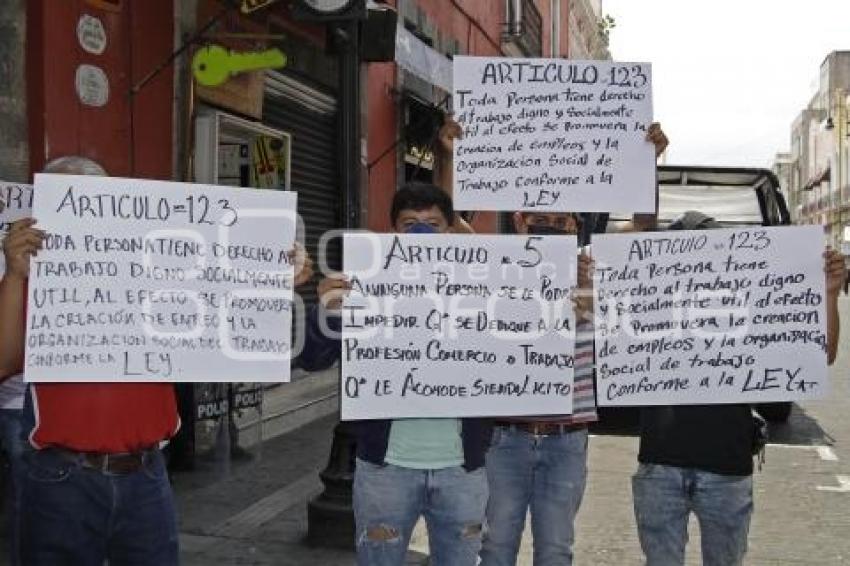 ARTICULO=123
TODA PERSONA TIENE DERECHO AL
TRABAJO DIGNO SOCIALMENTE
UTIL, AL EFECTO SE PROMOVERA
LA CREACIÓN DE ENTREO Y LA
ORGANIZACIÓN SOCIAL DEL TRABAJO
CONFORME LA LEY.
ARTICULO - 123
Toda Persona tiene derecho
al trabajo digno y socialmente
util al efecto se Promovera la
creación de empleos y la
organización Social de
Trabajo conforme a la
LEY
ARTICULO = 5
A NINGUNA PERSONA SE LE PODRA
IMPEDIR Qᵉ SE DEDIQUE A LA
PROFESIÓN COMERCIO O TRABAJO
Qᵉ LE ACOMODE SIENDO LICITO
ARTICULO - 123
Toda Persona tiene
derecho al trabajo digno
y Socialmente util al efecto
se Promovera la creacion
de empleos y la organización
Social de trabajo
conforme a la LEY.
agencia
enfoque
POLIC
POLIC